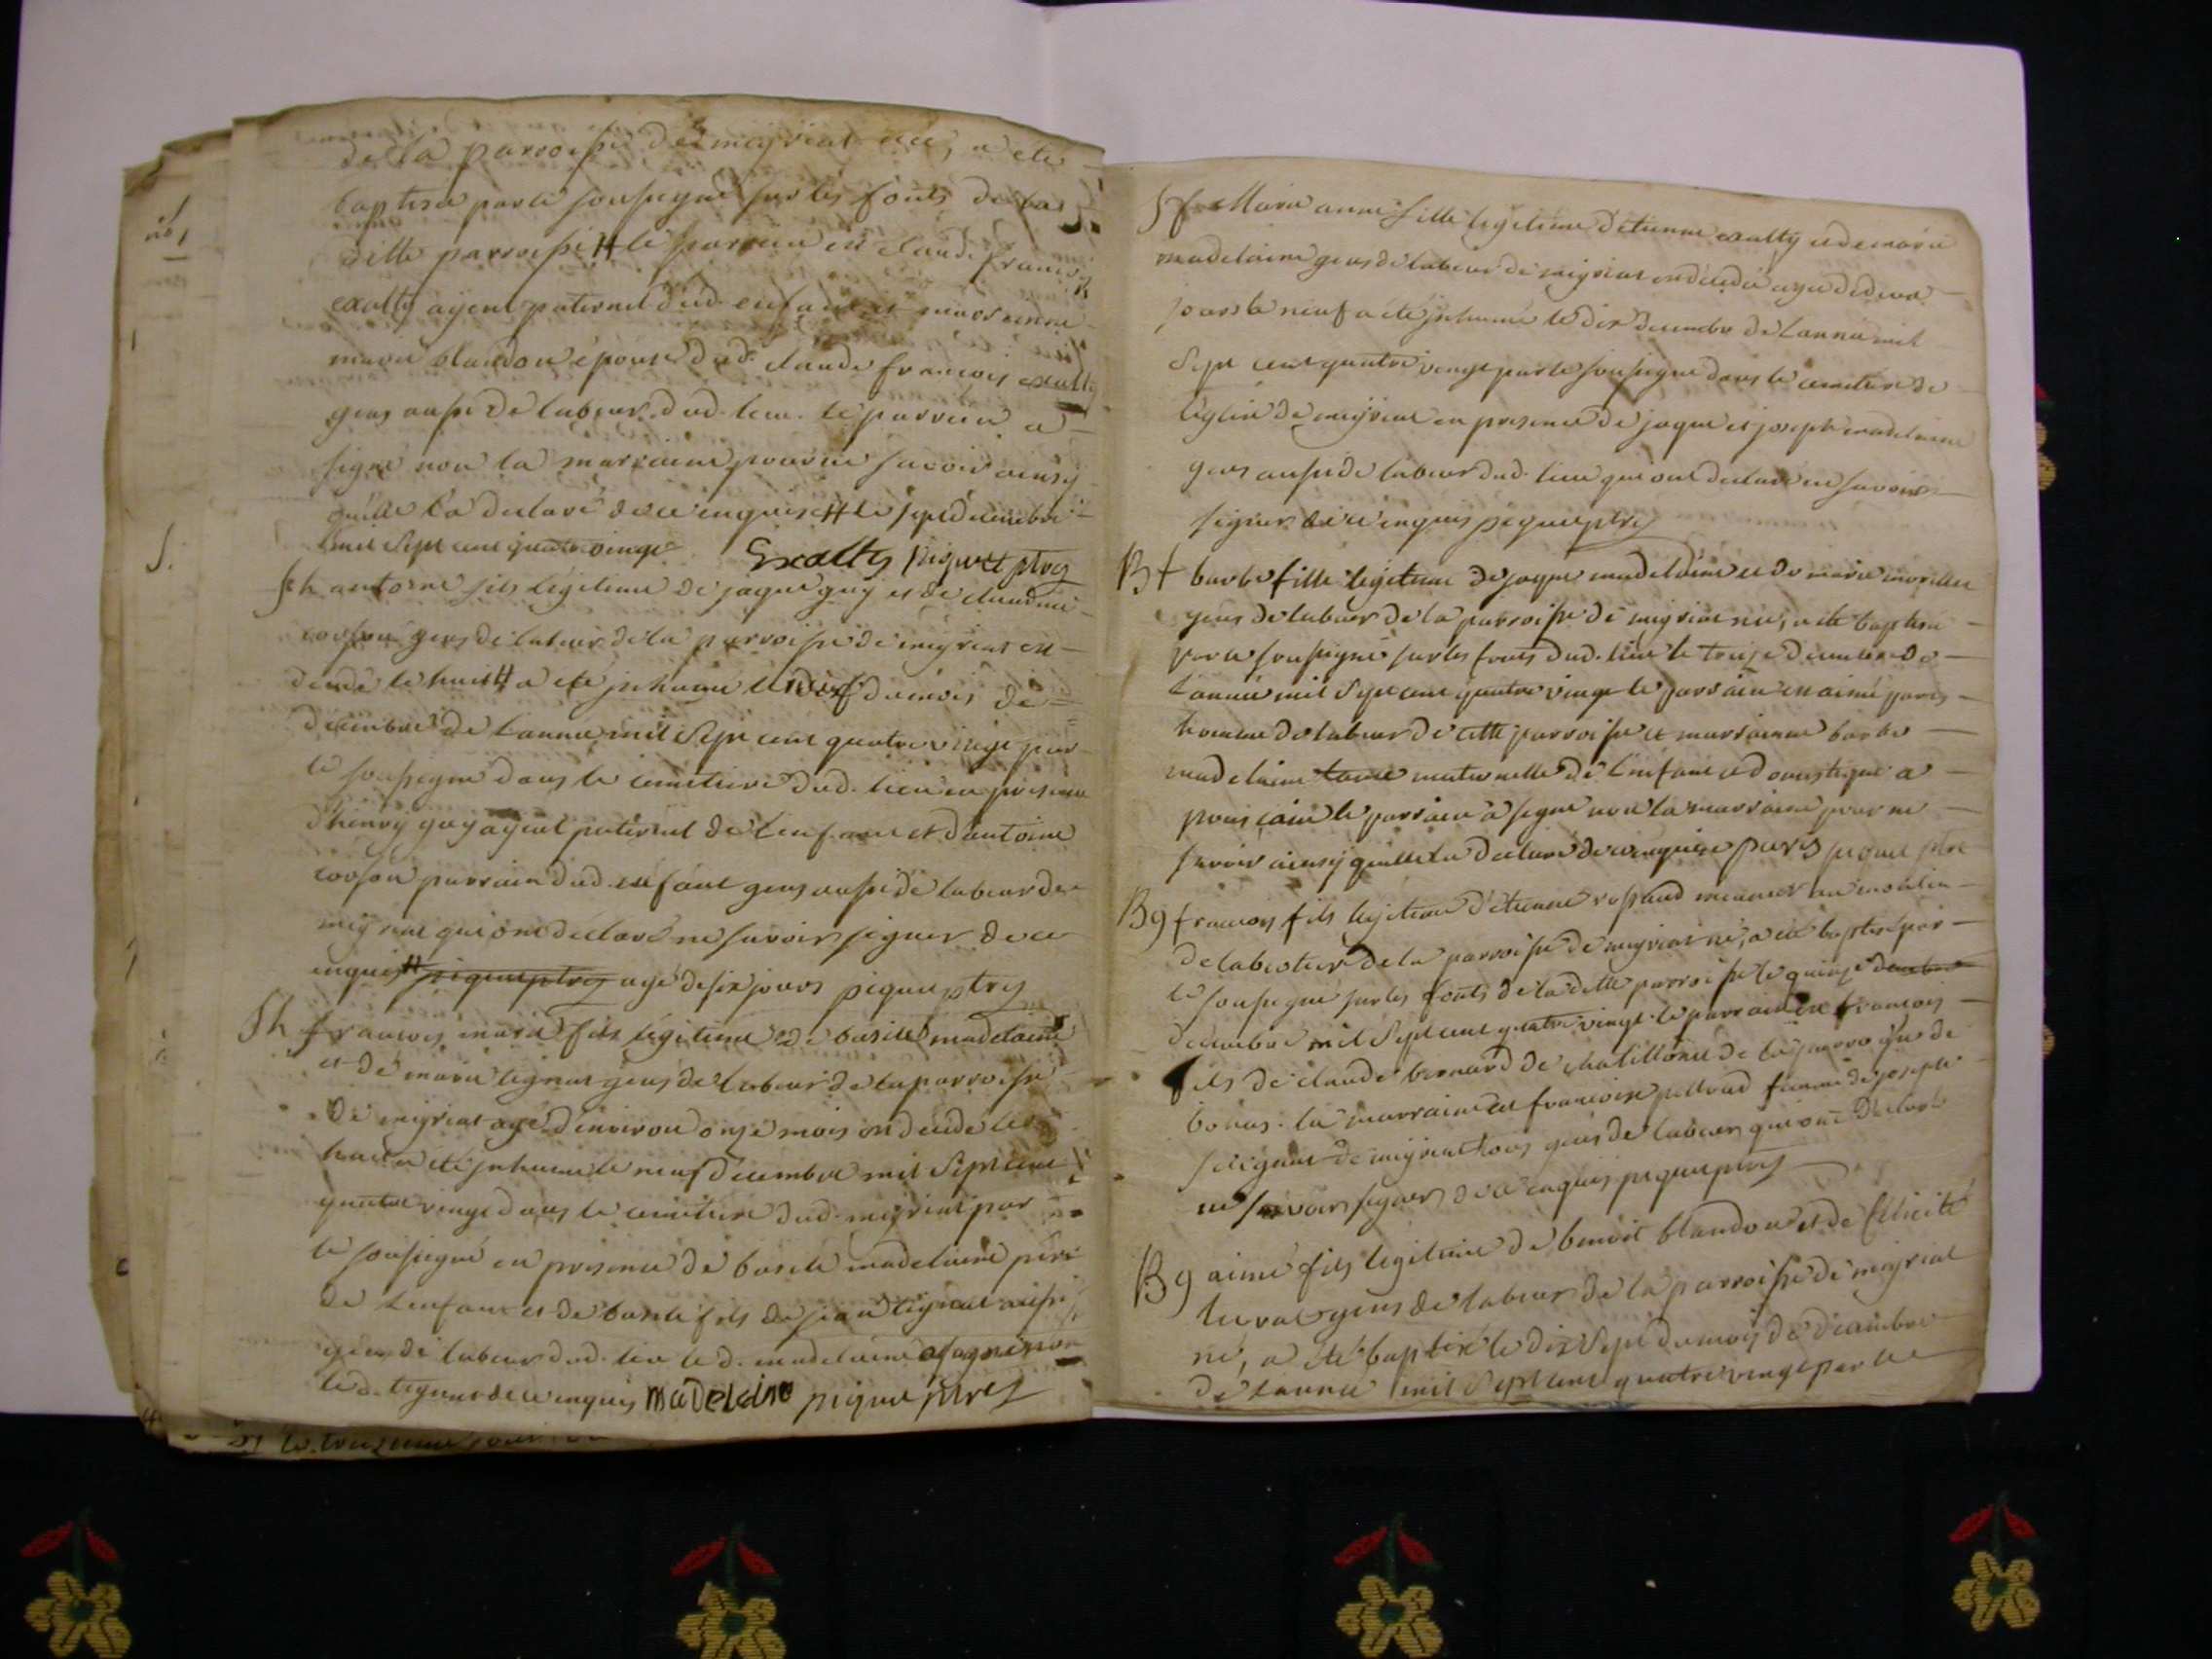 de la parroisse de meyriat née, a eté
baptisée par le soussigné sur les fonts de la
ditte parroisse # le parrain est claude francois
exalty ayeul paternel dud. enfant et marrienne
marie blandon épouse dud. claude francois exalty
gens aussi de labeur dud. lieu. le parrein a
signé non la marraine pour ne savoir ainsy
quelle l'a declaré de ce enquise # le sept decembre
mil sept cent quatre vingt Exalty piquet ptre
Sh antoine fils légitime de jaque guy et de claudine
gens de labeur de la parroisse de meyriat
décédé le huit # a eté inhumé le neuf du mois de
décembre de l'annee mil sept cent quatre vingt par
le soussigné dans le cemetiere dud. lieu en presence
d'henry guy ayeul paternel de l'enfant et d'antoine
parrain dud. enfant gens aussi de labeur de
meyriat qui ont déclaré ne savoir signer de ce
enquis # agé de six jours piquet ptre
Sh francois marie fils légitime de basile madelaine
et de marie lignat gens de labeur de la parroisse
de meyriat agé d'environ onze mois decede le
huit a eté inhumé le neuf decembre mil sept cent
quatre vingt dans le cemetiere dud. meyriat par
le soussigné en presence de basile madelaine pere
de l'enfant et de basile fils de jean lignat aussi
gens de labeur dud. lieu le d. madelaine a signé non
le d. lignat de ce enquis madelaine piquet ptre
Sf Marie anne fille légitime d'etienne exalty et de marie
madelaine gens de labeur de meyriat decedée agée de deux
jours le neuf a été inhumée le dix decembre de l'année mil
sept cent quatre vingt par le soussigné dans le cemetiere de
l'église de meyriat en presence de jaque et joseph madelaine
gens aussi de labeur dud. lieu qui ont declaré ne savoir
signer de ce enquis piquet ptre
Bf barbe fille légitime de jaque madelaine et de marie
gens de labeur de la parroisse de meyriat née, a eté baptisée
par le soussigné sur les fonts dud. lieu le treize decembre de
l'année mil sept cent quatre vingt le parrain est aimé
homme de labeur de cette parroisse et marraine barbe
madelaine tante maternelle de l'enfant et domestique a
le parrain a signé non la marraine pour ne
savoir ainsy quelle l'a declaré de ce enquise piquet ptre
Bg francois fils légitime d'etienne meunier au moulin
de la parroisse de meyriat né, a eté baptisé par
le soussigné sur les fonts de la ditte parroisse le quinze decembre
decembre mil sept cent quatre vingt. le parrain est francois
fils de claude bernard de chatillonet de la parroisse de
bohas. la marraine est francoise femme de joseph
de meyriat tous gens de labeur qui ont declaré
ne savoir signer de ce enquis piquet ptre
Bg aimé fils légitime de benoit blandon et de félicité
gens de labeur de la parroisse de meyriat
né, a été baptisé le dix sept du mois de decembre
de l'année mil sept cent quatre vingt par le